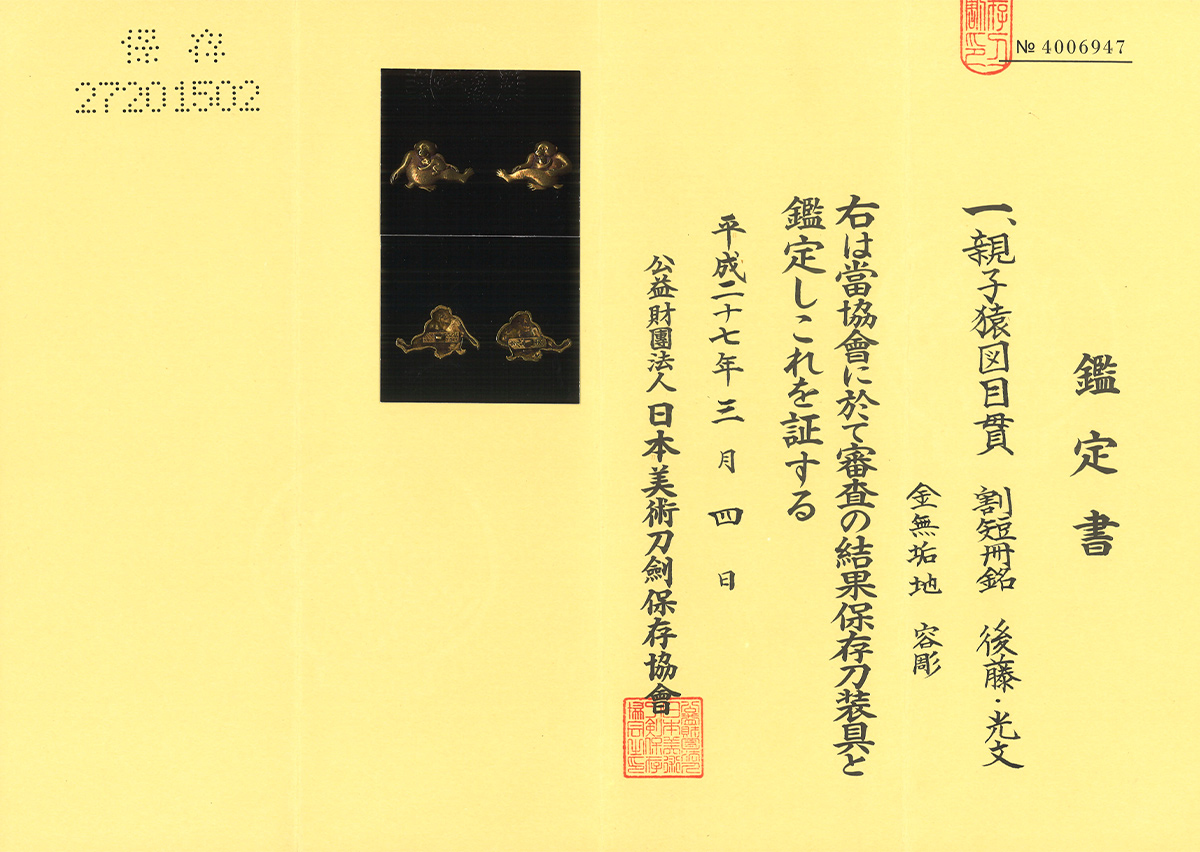 № 4006947
鑑定書
一、親子猿図目貫 割短冊銘 後藤・光文
金無垢地 容彫
右は當協會に於て審査の結果保存刀装具と
鑑定しこれを証する
平成二十七年三月四日
公益財團法人 日本美術刀劍保存協會
保存
27201502